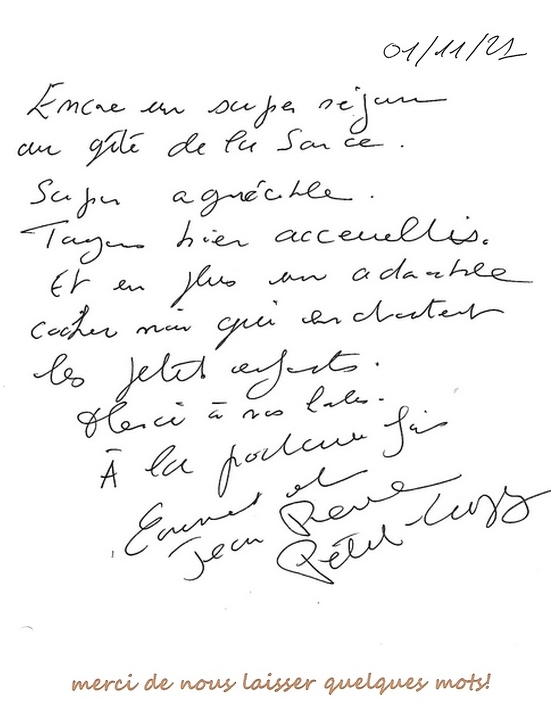 01/11/21
Encore un super séjour
au gîte de la Source.
Super agréable.
Toujours bien accueillis.
Et en plus un adorable
cochon noir qui enchantent
les petits enfants.
Merci à nos hôtes.
À la prochaine fois
et
Jean Pierre
Petit
merci de nous laisser quelques mots!